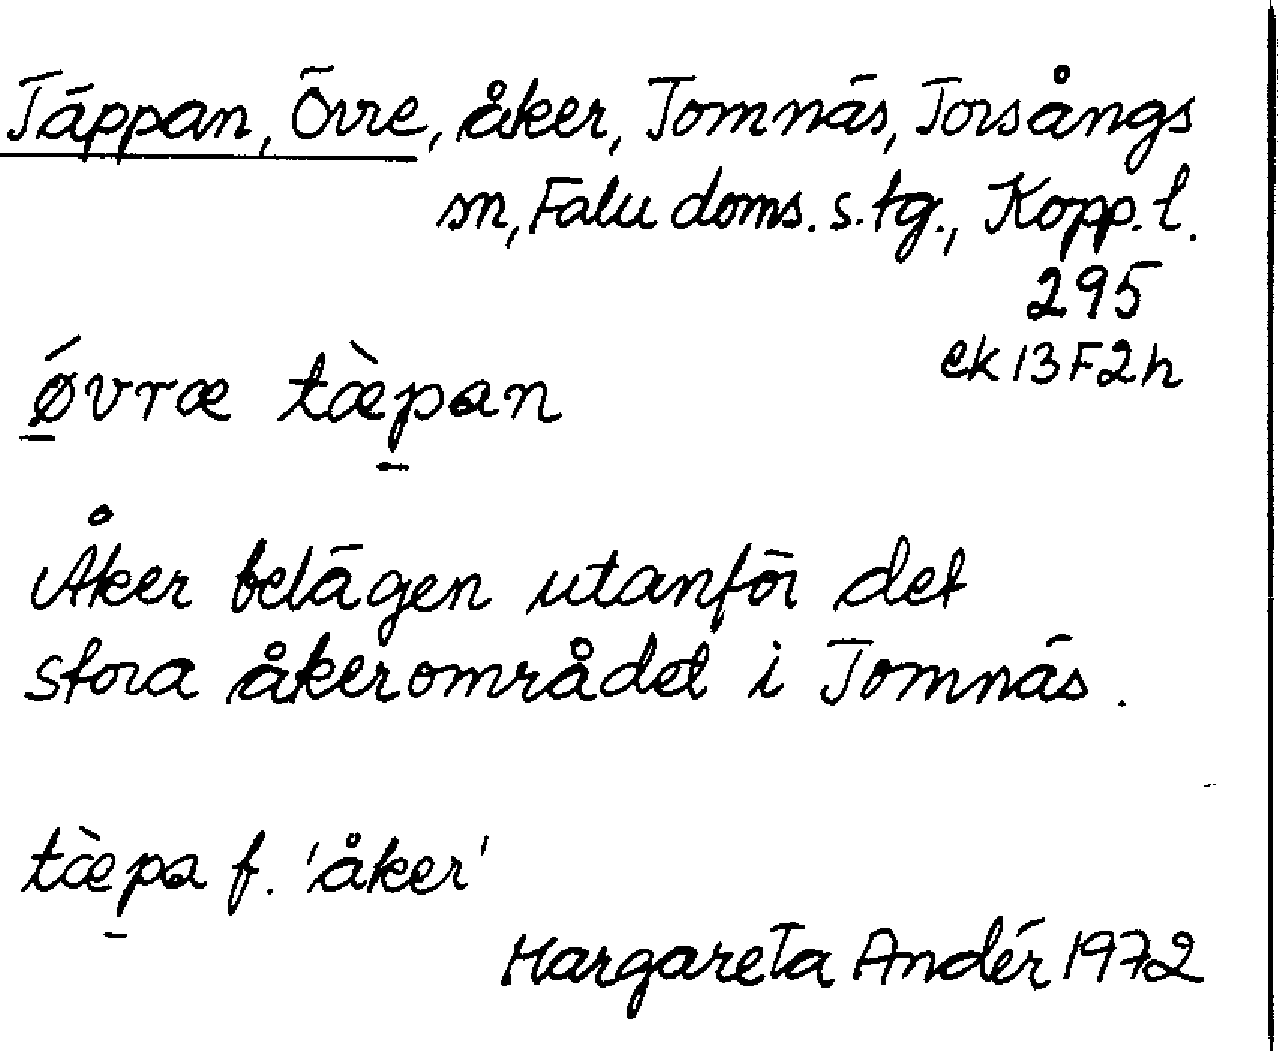 Täppan, Övre, åker, Tomnäs, Torsångs
sn, Falu doms. s. tg., Kopp. l.
295
ek 13 F 2 h
ǿ̱vræ tæ̀p̱an
Åker belägen utanför det
stora åkerområdet i Tomnäs.
tæ̀p̱a f. 'åker'
Margareta Andér 1972